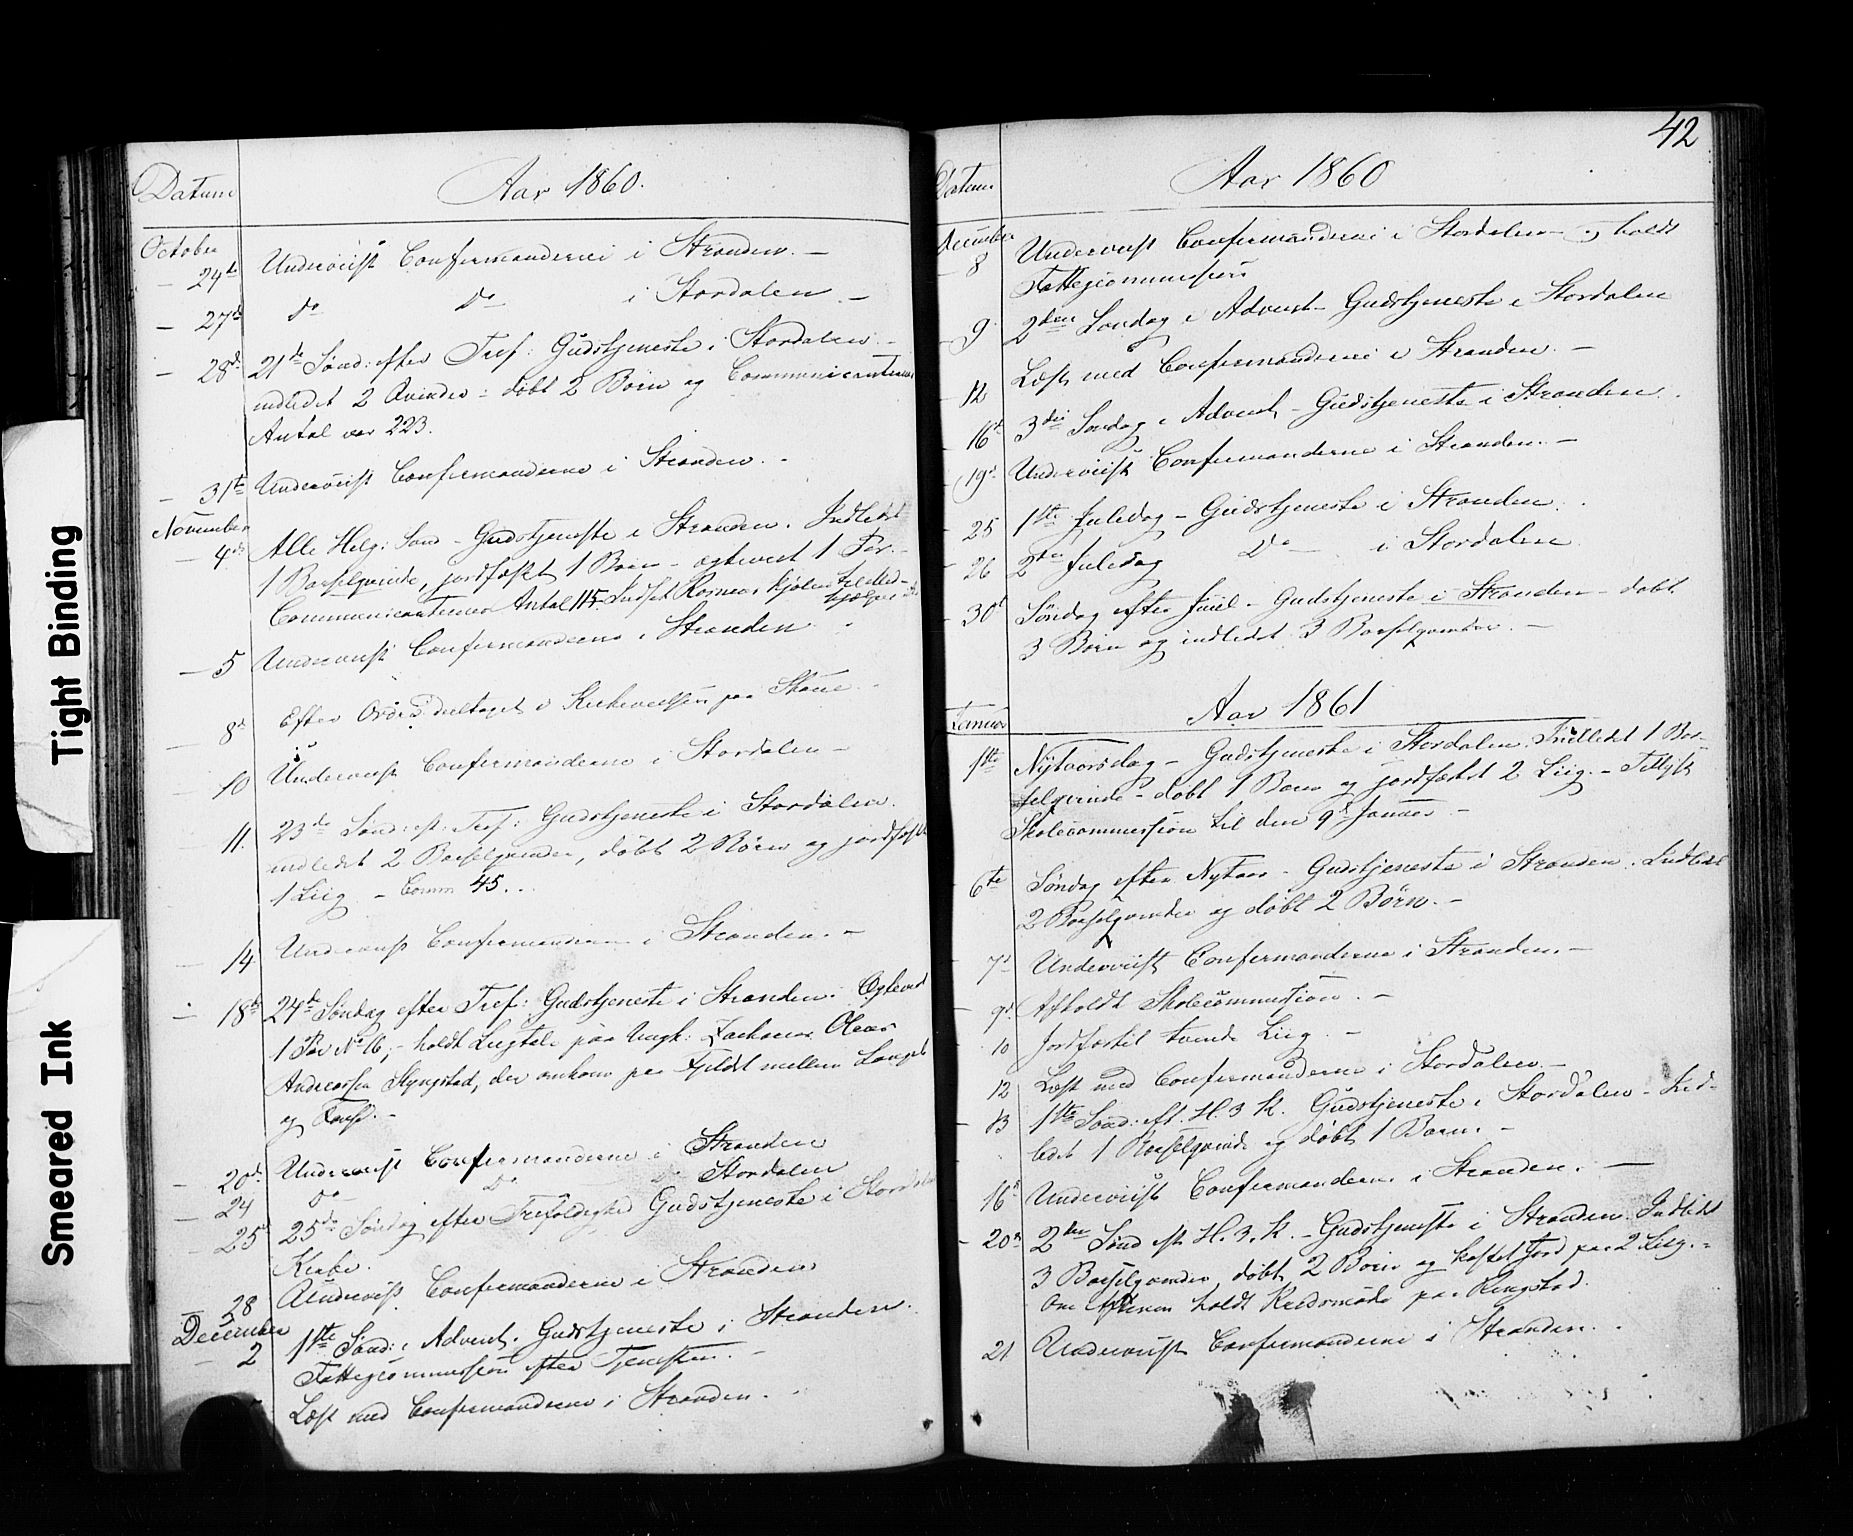 Tight Binding
Smeared Ink
Datum
Aar 1860.
October
24de Underviist Confermanderne i Stranden. —
— 27de Do Do i Stordalen —
— 28de 21de Sønd: efter Tref: Gudstjeneste i Stordalen. —
indledet 2 Qvinder – døbt 2 Børn og Communicanternes
Antal var 223.
— 31te Underviist Confermanderne i Stranden. -
November
— 4de Alle Helg: Sønd – Gudstjeneste i Stranden. Indledet
1 Barselqvinde, jordfæstet 1 Barn – egteviet 1 Par. –
Communicanternes Antal 115. Indsat Rasmus til Med-
hjælper
— 5 Underviist Confermanderne i Stranden
8de Efter Ordre deeltaget i Kirkevielsen paa
10 Underviist Confermanderne i Stordalen –
11. 23de Sønd: ef: Tref: Gudstjeneste i Stordalen.
indledet 2 Barselqvinder, døbt 2 Børn og jordfæstet
1 Liig – Comm 45. . .
14. Underviist Confermanderne i Stranden. –
18de 24de Søndag efter Tref: Gudstjeneste i Stranden. Egteviet
1 Par No 16, – holdt Liigtale paa Ungk: Zacharias Olaus
Andreassen Ryngstad, der omkom paa Fjeldet mellem
og
— 20de Underviist Confermanderne i Stranden
— 24 Do Do Stordalen
— 25 25de Søndag efter Trefoldighed Gudstjeneste i Stordalen
Kirke.
28 Underviist Confermanderne i Stranden
December
— 2 1ste Sønd: i Advent. Gudstjeneste i Stranden.
Fattigcommission efter Tjenesten. –
Læst med Confermanderne i Stranden. -
42
Datum
Aar 1860
December
— 8 Underviist Confermanderne i Stordalen – og holdt
Fattigcommission
— 9. 2den Søndag i Advent – Gudstjeneste i Stordalen
12 Læst med Confermanderne i Stranden. –
— 16de 3die Søndag i Advent – Gudstjeneste i Stranden.
— 19de Underviist Confermanderne i Stranden. –
25 1ste Juledag – Gudstjeneste i Stranden.
26 2den Juledag Do – i Stordalen
30te Søndag efter Juul – Gudstjeneste i Stranden – døbt
3 Børn og indledet 3 Barselqvinder. –
Aar 1861
Januar
1ste Nytaarsdag – Gudstjeneste i Stordalen. Indledet 1 Bar-
selqvinde – døbt 1 Barn og jordfæstet 2 Liig. – Tillyst
Skolecommission til den 9de Januar –
6te Søndag efter Nytaar – Gudstjeneste i Stranden. Indledet
2 Barselqvinder og døbt 2 Børn. –
7de Underviist Confermanderne i Stranden. –
— 9de Afholdt Skolecommission. –
10 Jordfæstet tvende Liig. –
12 Læst med Confermanderne i Stordalen. –
13 1ste Sønd: eft. H. 3 K. Gudstjeneste i Stordalen – Ind-
ledet 1 Barselqvinde og døbt 1 Barn. –
16de Underviist Confermanderne i Stranden. —
— 20de 2den Sønd eft H. 3. K. – Gudstjeneste i Stranden. Indledet
3 Barselqvinder, døbt 2 Børn og kastet Jord paa 2 Liig. –
Om Aftenen holdt Kredsmøde paa Ringstad.
21 Underviist Confermanderne i Stranden. .